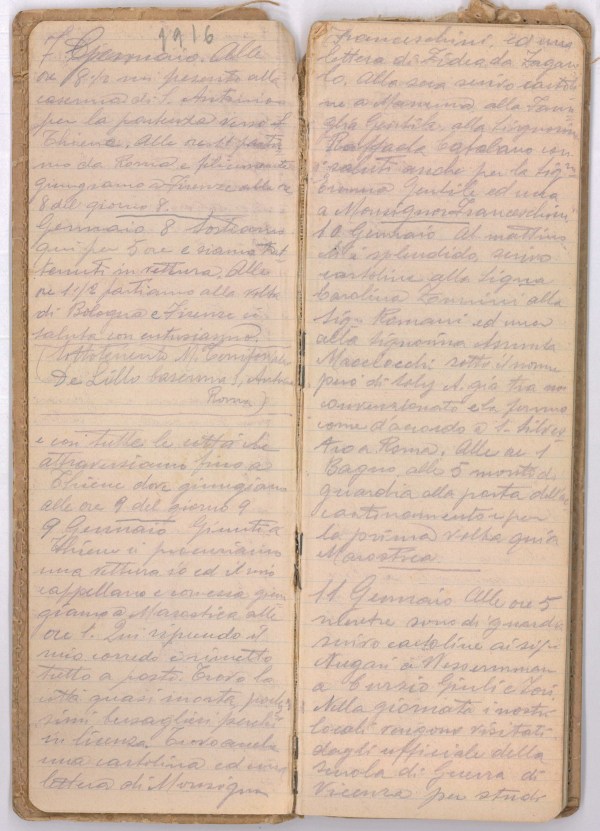 1916
7 Gennaio. Alle
ore 8 1/2 mi presento alla
caserma di S. Antonino
per la partenza verso
Thiene. Alle ore 11 partia
mo da Roma e felicemente
giungiamo a Firenze alle ore
8 del giorno 8.
Gennaio 8 Sostiamo
qui per 5 ore e siamo trat
tenuti in vettura. Alle
ore 1 1/2 partiamo alla volta
di Bologna e Firenze ci
saluta con entusiasmo.
(Sottotenente M.
De Lillo caserma
Roma)
e così tutte le città che
attraversiamo fino a
Thiene dove giungiamo
alle ore 9 del giorno 9
9 Gennaio Giunti a
Thiene ci procuriamo
una vettura io ed il mio
cappellano e con essa giun
giamo a Marostica alle
ore 1. Qui riprendo il
mio corredo e rimetto
tutto a posto. Trovo la
città quasi morta, pochis
simi bersaglieri perché
in licenza. Trovo anche
una cartolina ed una
lettera di Monsignor
Franceschini, ed una
lettera di da
lo. Alla sera scrivo cartoli
ne a Mammà, alla Fami
glia Gentile, alla Signorina
Raffaela Catalano con
i saluti anche per la Sig.
Emma Gentile ed una
a Monsignor Franceschini
10 Gennaio Al mattino
che è splendido, scrivo
cartoline alla Signa
Carolina alla
Sig. Romani ed una
alla signorina Assunta
Macelocchi sotto il nome
però di già tra noi
convenzionato e la fermo
come d'accordo a S. Silves
tro a Roma. Alle ore 1
Bagno, alle 5 monto di
guardia alla porta della
cantinamento e per
la prima volta qui a
Marostica.
11 Gennaio Alle ore 5
mentre sono di guardia
scrivo cartoline ai sig.i
a
a Curzio Giuli e
Nella giornata i nostri
locali vengono visitati
dagli ufficiale della
scuola di Guerra di
Vicenza per studi